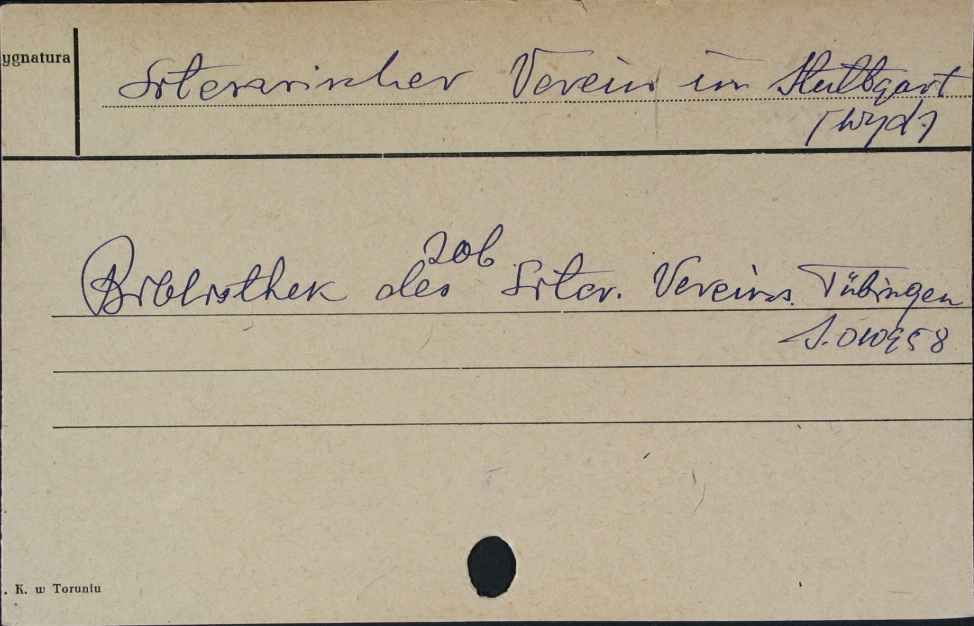 ygnatura
Literarischer Verein in Stuttgart
[wyd.]
Bibliothek des Liter. Vereins. Tübingen
zob
S. 010958
. K. w Toruniu